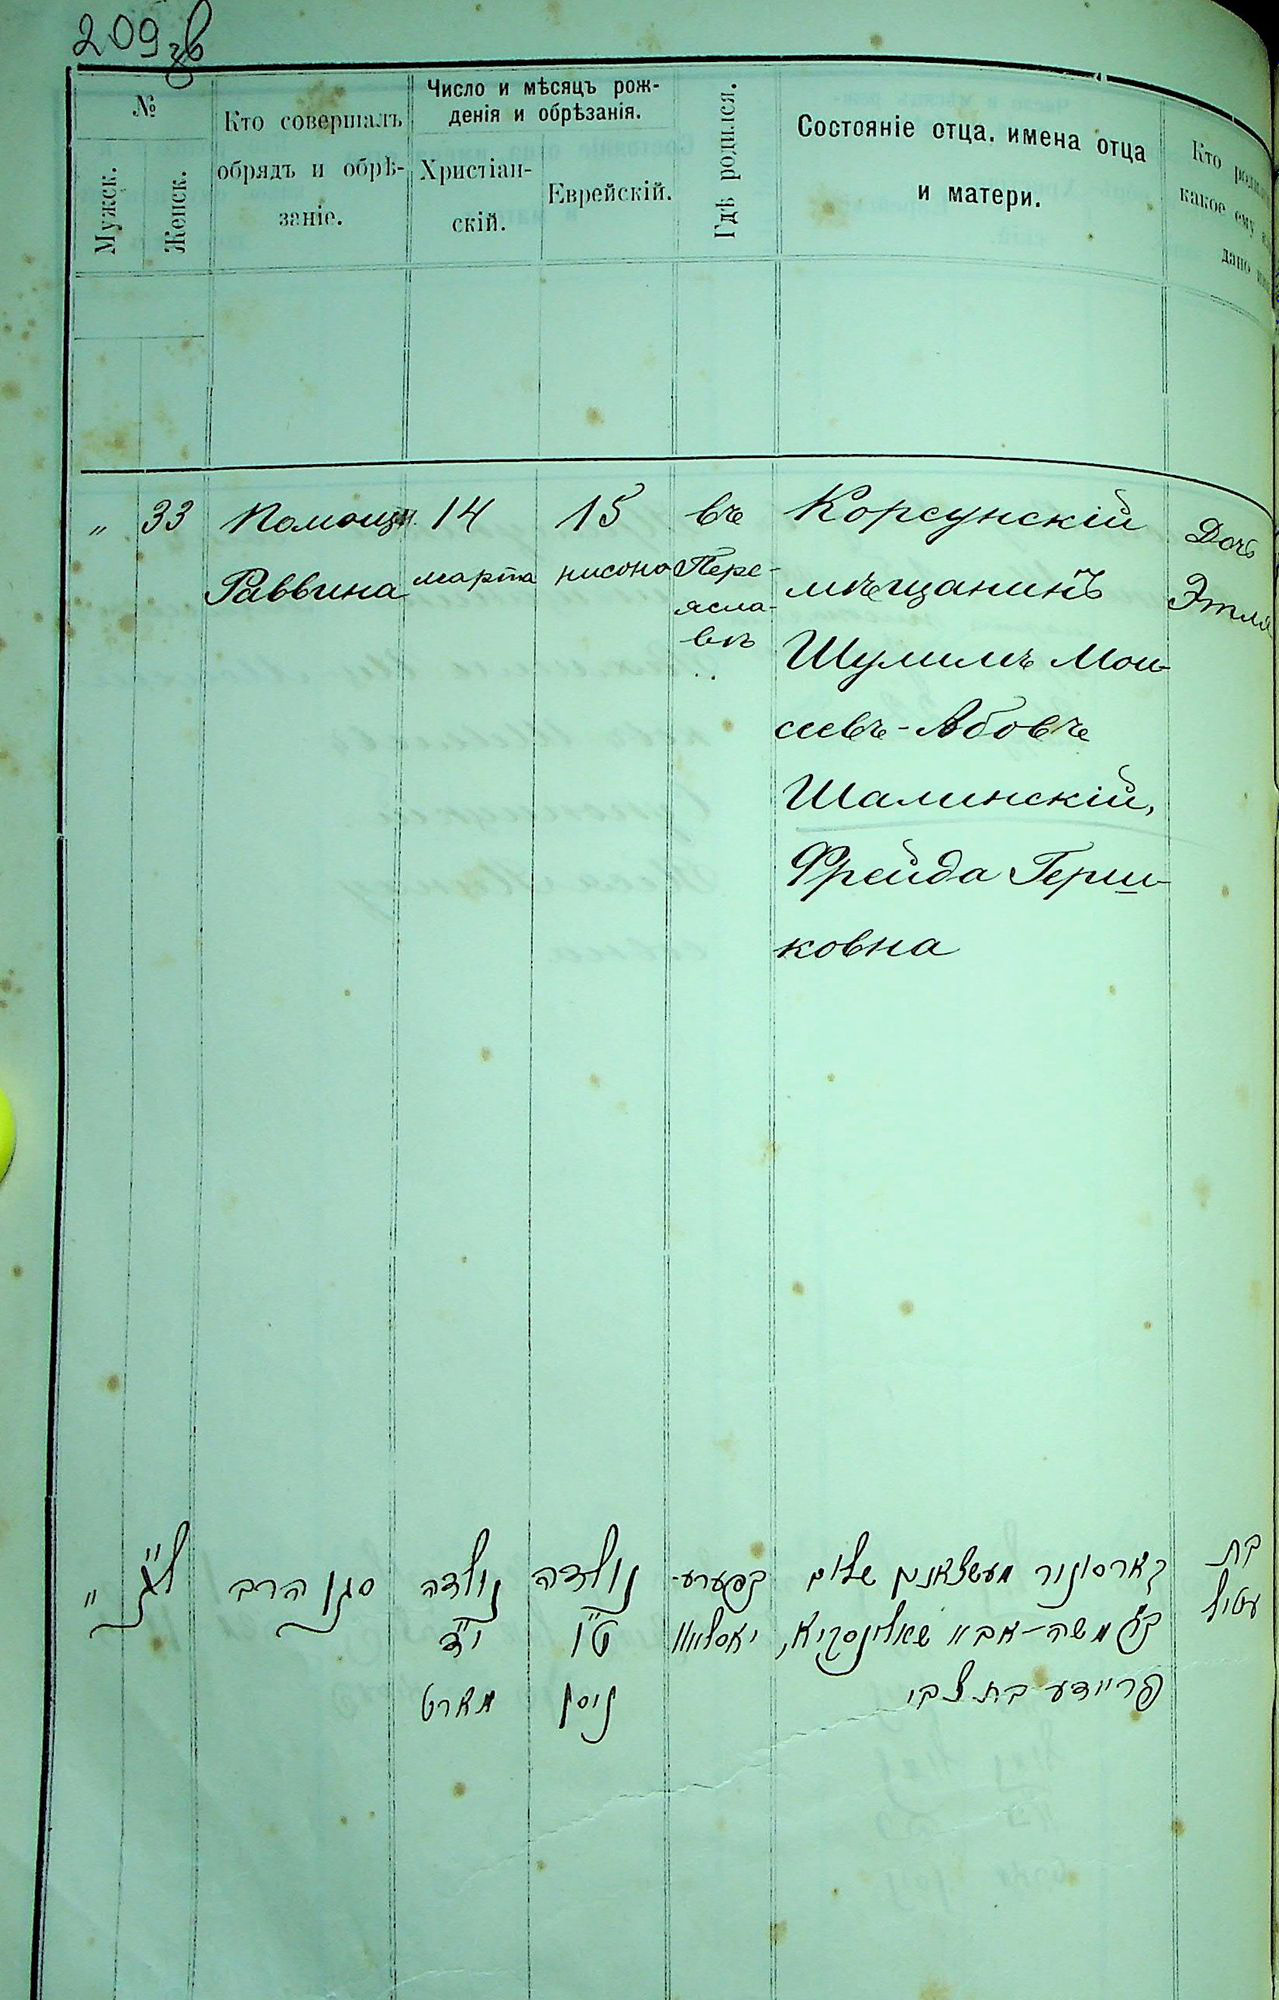 209 зв
№
Мужск.
Женск.
Кто совершалъ
обрядъ и обрѣ-
заніе.
Число и мѣсяцъ рож-
денія и обрѣзанія.
Христіан-
скій.
Еврейскій.
Гдѣ родился.
Состояніе отца. имена отца
и матери.
Кто роди
какое ему
дано
„ 33
Помощн.
Раввина
14
марта
15
нисона
въ
Пере-
ясла-
вѣ
Корсунскій
мѣщанинъ
Шулимъ Мои-
сеевъ-Абовъ
Шалинскій,
Фрейда Герш-
ковна
Дочь
Этля
" ל"ג
סגן הרב
נולדה
י"ד
מארט
נולדה
ט"ו
ניסן
בפערע-
יאסלאוו
קארסונער מעשצאנין שלום
ב"ר משה-אבא שאלינסקיא,
פריידע בת צבי
בת
עטיל